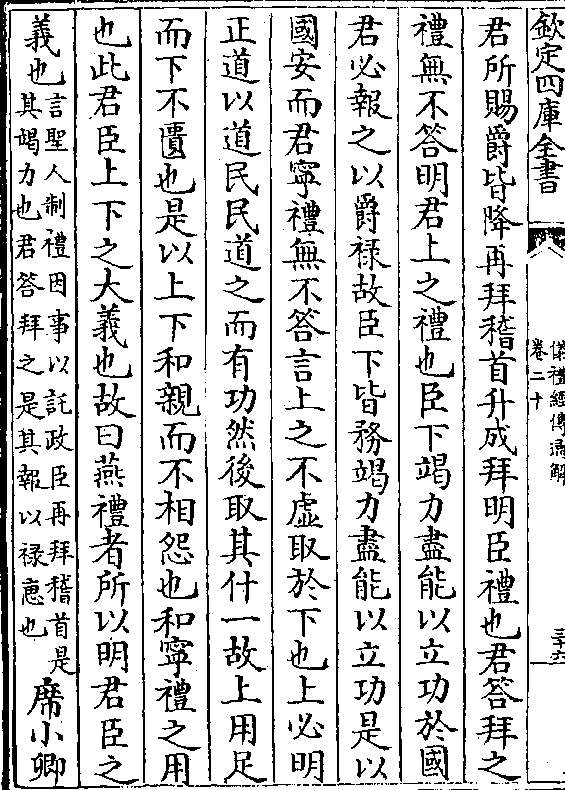 欽定四庫全書
儀禮經傳通解
卷二十
三十六
君所賜爵皆降再拜稽首升成拜明臣禮也君答拜之
禮無不答明君上之禮也臣下竭力盡能以立功於國
君必報之以爵祿故臣下皆務竭力盡能以立功是以
國安而君寧禮無不答言上之不虛取於下也上必明
正道以道民民道之而有功然後取其什一故上用足
而下不匱也是以上下和親而不相怨也和寧禮之用
也此君臣上下之大義也故曰燕禮者所以明君臣之
義也言聖人制禮因事以託政臣再拜稽首是其竭力也君答拜之是其報以祿惠也席小卿